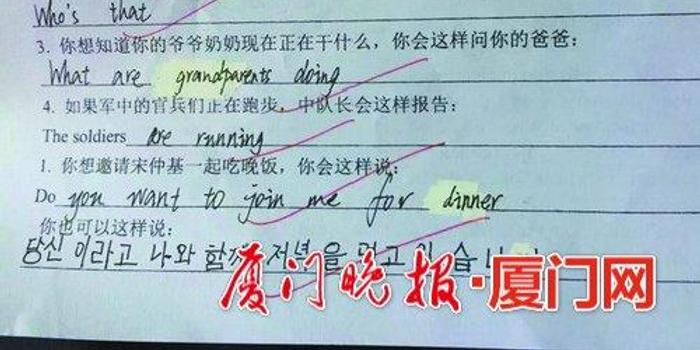 Who's that
3. 你想知道你的爷爷奶奶现在正在干什么，你会这样问你的爸爸：
What are grandparents doing
4. 如果军中的官兵们正在跑步，中队长会这样报告：
The soldiers are running
1. 你想邀请宋仲基一起吃晚饭，你会这样说：
Do you want to join me for dinner
你也可以这样说：
당신 이라고 나와 함께 저녁 을 먹고 습니
厦门晚报·厦门网